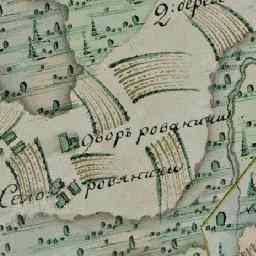 2: дерев
Дворъ ровакини
Село ровакини